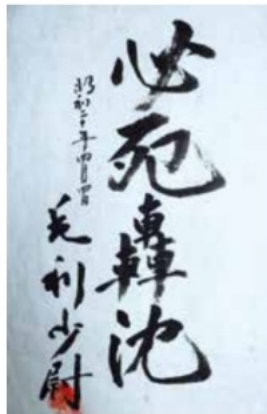 必死轟沈
昭和二十年四月四日
毛利少尉